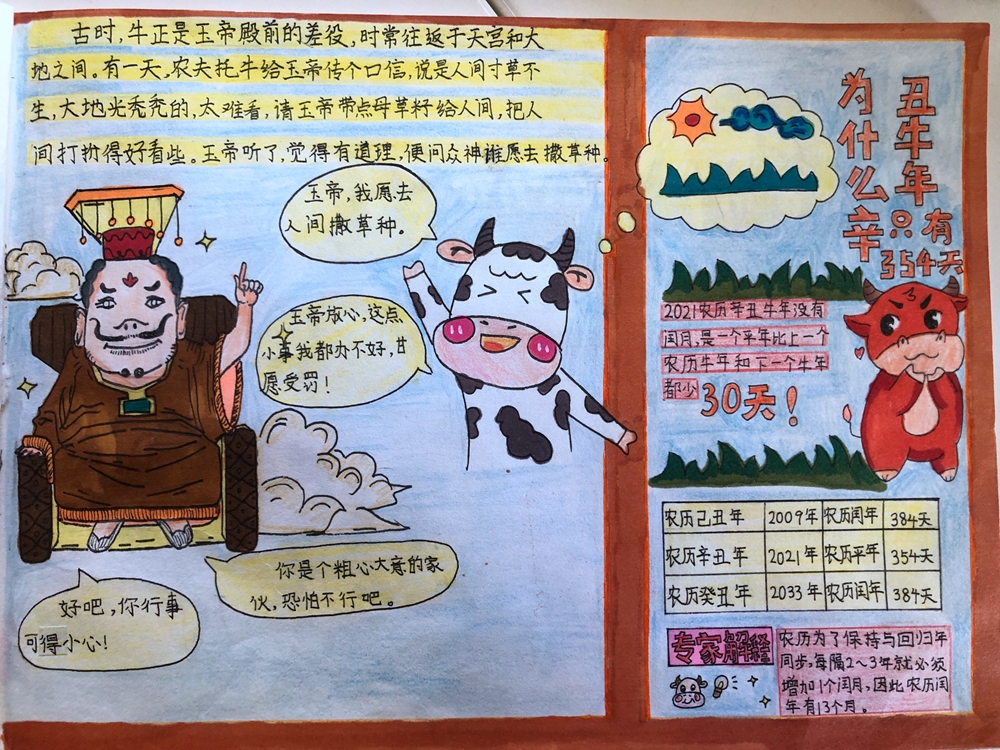 古时,牛正是玉帝殿前的差役,时常往返于天宫和大
地之间。有一天,农夫托牛给玉帝传个口信,说是人间寸草不
生,大地光秃秃的,太难看,请玉帝带点母草籽给人间,把人
间打扮得好看些。玉帝听了,觉得有道理,便问众神谁愿去撒草种。
玉帝,我愿去
人间撒草种。
玉帝放心,这点
小事我都办不好,甘
愿受罚!
你是个粗心大意的家
伙,恐怕不行吧。
好吧,你行事
可得小心!
为什么辛
丑牛年
只有
354天
2021农历辛丑牛年没有
闰月,是一个平年比上一个
农历牛年和下一个牛年
都少
30天!
农历己丑年 2009年 农历闰年 384天
农历辛丑年 2021年 农历平年 354天
农历癸丑年 2033年 农历闰年 384天
专家解释
农历为了保持与回归年
同步,每隔2~3年就必须
增加1个闰月,因此农历闰
年有13个月。